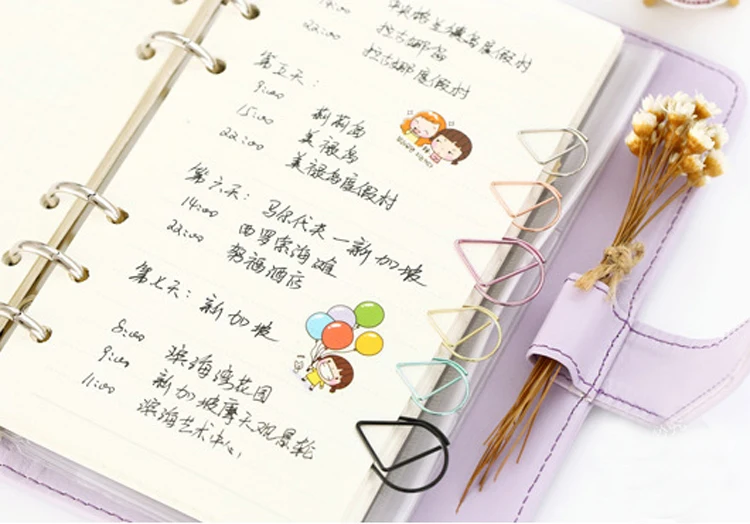 14:00 中央格兰德岛度假村
22:00 拉古娜岛
拉古娜度假村
第五天：
9:00 莉莉岛
15:00 美禄岛
22:00 美禄岛度假村
第六天：马尔代夫—新加坡
14:00 西罗索海滩
22:00 努福酒店
第七天：新加坡
8:00 滨海湾花园
9:00 新加坡摩天观景轮
11:00 滨海艺术中心